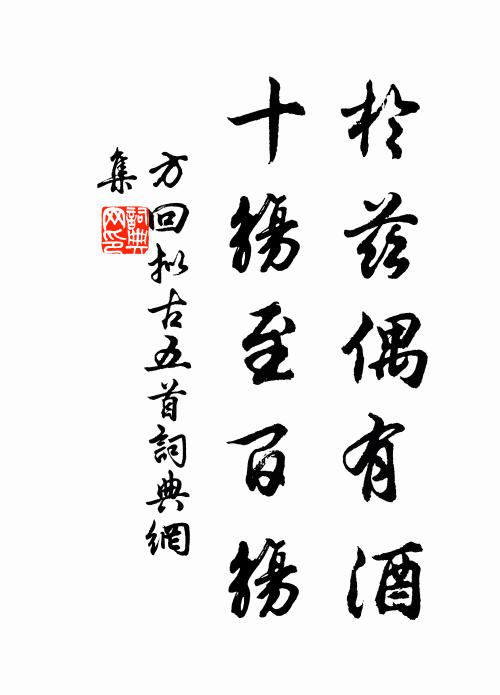 於茲偶有酒
十觴至百觴
方回擬古五首詞典網
集
詞典網印